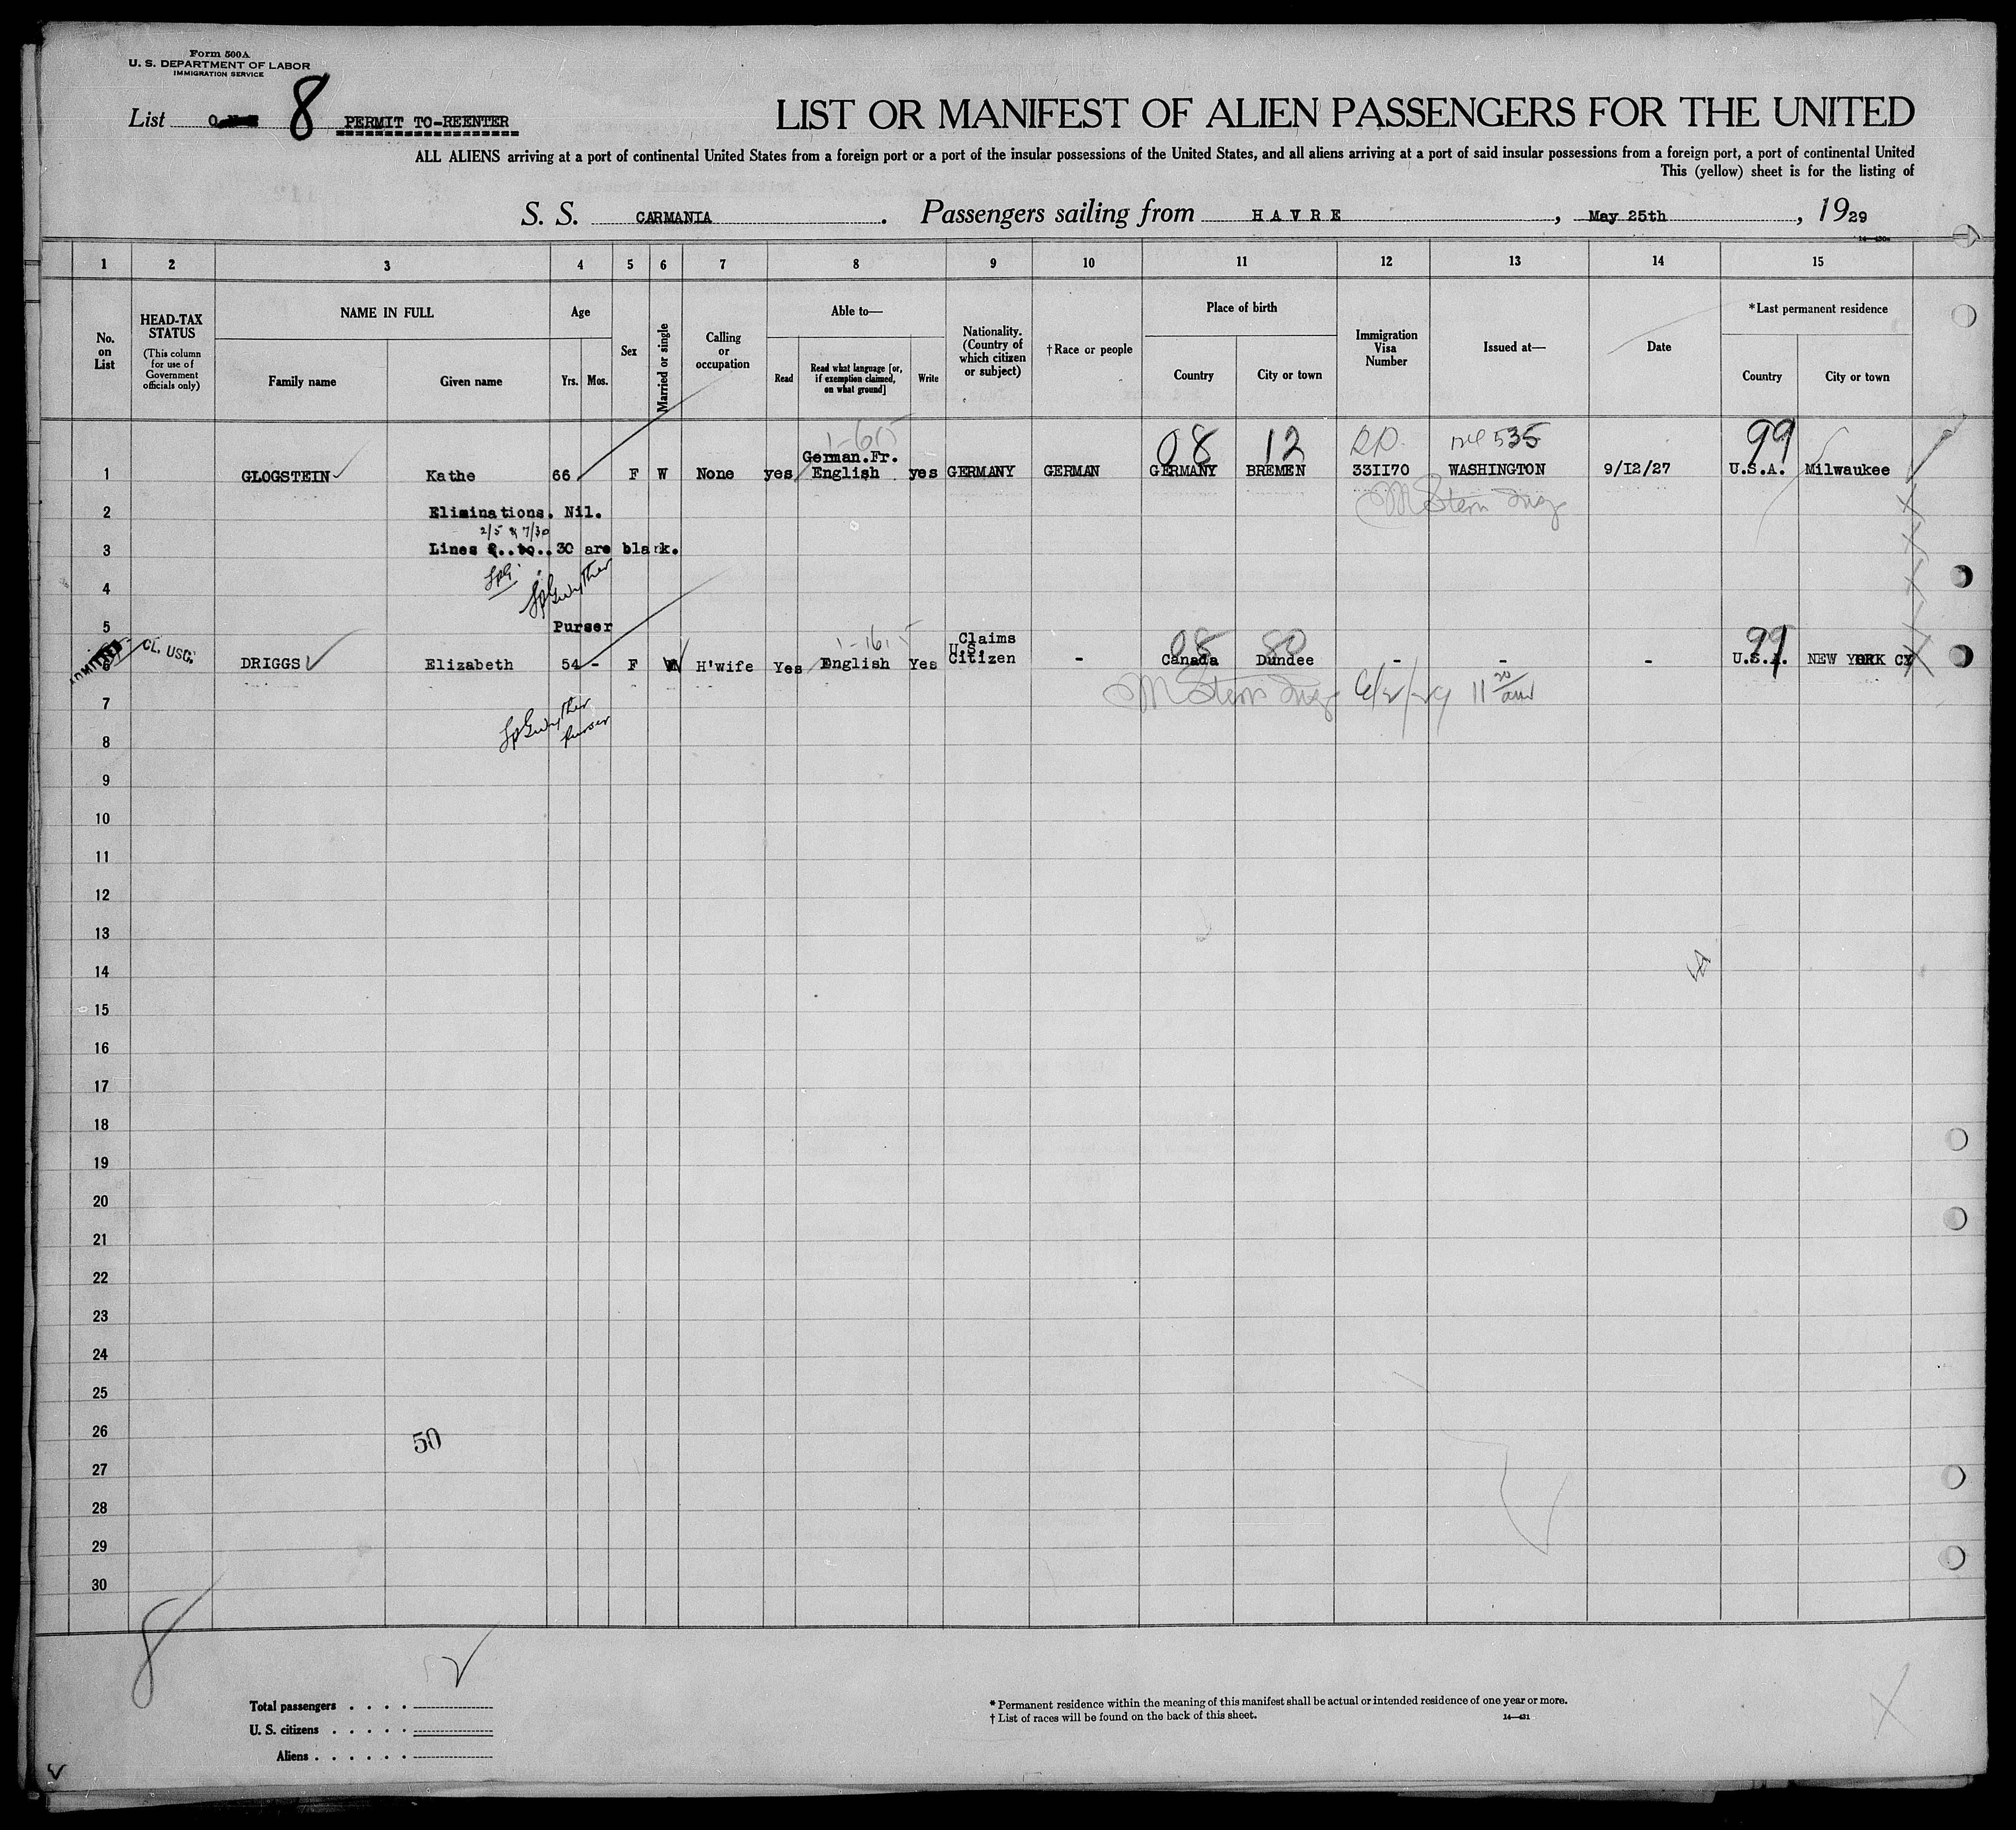 Form 500A
U. S. DEPARTMENT OF LABOR
IMMIGRATION SERVICE
List 8 PERMIT TO-REENTER
LIST OR MANIFEST OF ALIEN PASSENGERS FOR THE UNITED
ALL ALIENS arriving at a port of continental United States from a foreign port or a port of the insular possessions of the United States, and all aliens arriving at a port of said insular possessions from a foreign port, a port of continental United
This (yellow) sheet is for the listing of
S. S. CARMANIA. Passengers sailing from HAVRE, May 25th, 1929
1 2 3 4 5 6 7 8 9 10 11 12 13 14 15
No. on List
HEAD-TAX STATUS
(This column for use of Government officials only)
NAME IN FULL
Family name Given name
Age
Yrs. Mos.
Sex
Married or single
Calling or occupation
Able to—
Read
Read what language [or, if exemption claimed, on what ground]
Write
Nationality. (Country of which citizen or subject)
†Race or people
Place of birth
Country City or town
Immigration Visa Number
Issued at—
Date
*Last permanent residence
Country City or town
08 12 R.P. 535 99
German.Fr.
1 GLOGSTEIN Kathe 66 F W None yes English yes GERMANY GERMAN GERMANY BREMEN 331170 WASHINGTON 9/12/27 U.S.A. Milwaukee
2 Eliminations. Nil.
M Stern Insp
2/5 & 7/30
3 Lines ..to..30 are blank.
4
5 Purser
1-1615
Claims
08 80 99
ADMITTED CL. USC. DRIGGS Elizabeth 54 - F H'wife Yes English Yes U.S. Citizen - Canada Dundee - - - U.S.A. NEW YORK CY
7 M Stern Insp 6/2/29 11 20 am
Purser
8
9
10
11
12
13
14
15
16
17
18
19
20
21
22
23
24
25
26
50
27
28
29
30
8
Total passengers . . . .
U. S. citizens . . . . .
Aliens . . . . . .
* Permanent residence within the meaning of this manifest shall be actual or intended residence of one year or more.
† List of races will be found on the back of this sheet.
14—431